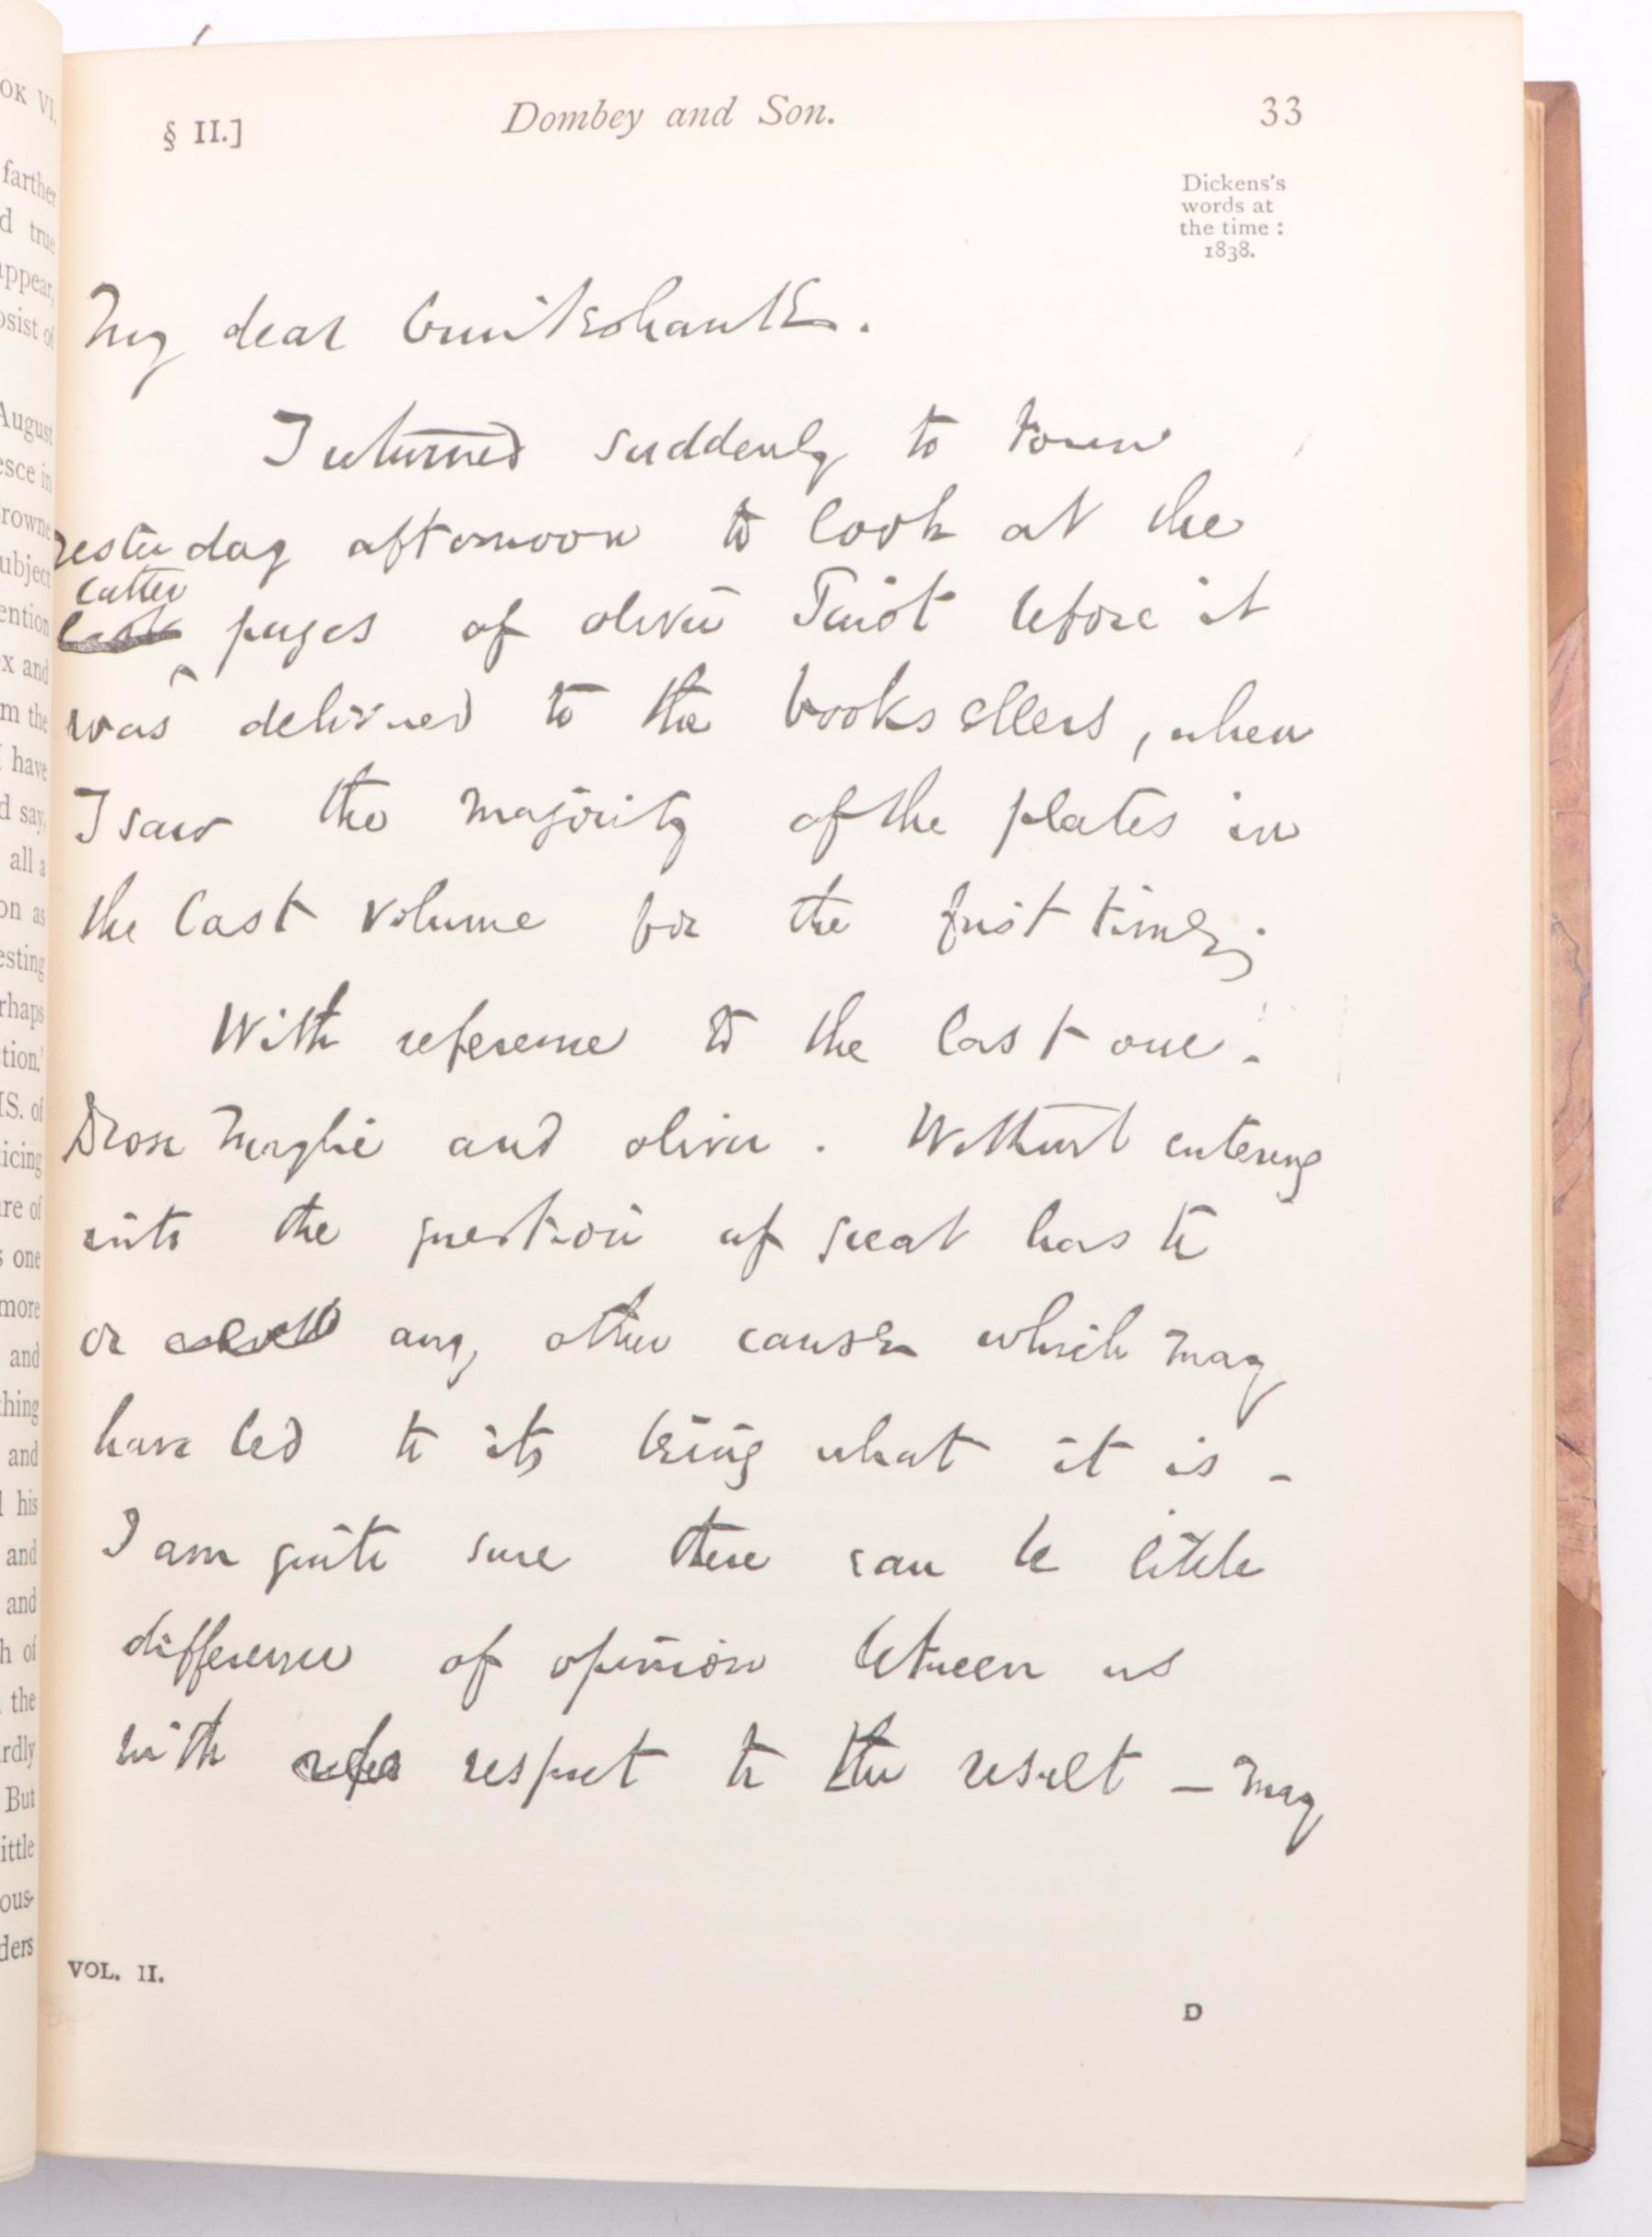 OK VI.
farther
d true
appear,
osist of
August
esce in
rowne
ubject
ention
x and
m the
I have
d say,
all a
on as
esting
rhaps
tion.'
IS. of
icing
ure of
s one
more
and
thing
and
l his
and
and
h of
the
rdly
But
ittle
ous-
ders
§ II.] Dombey and Son. 33
Dickens's
words at
the time :
1838.
My dear Cruikshank.
I returned suddenly to town
yesterday afternoon to look at the
latter
pages of Oliver Twist before it
was delivered to the booksellers, when
I saw the majority of the plates in
the last volume for the first time.
With reference to the last one -
Rose Maylie and Oliver. Without entering
into the question of great haste
or any other cause which may
have led to its being what it is -
I am quite sure there can be little
difference of opinion between us
with respect to the result - may
VOL. II.
D